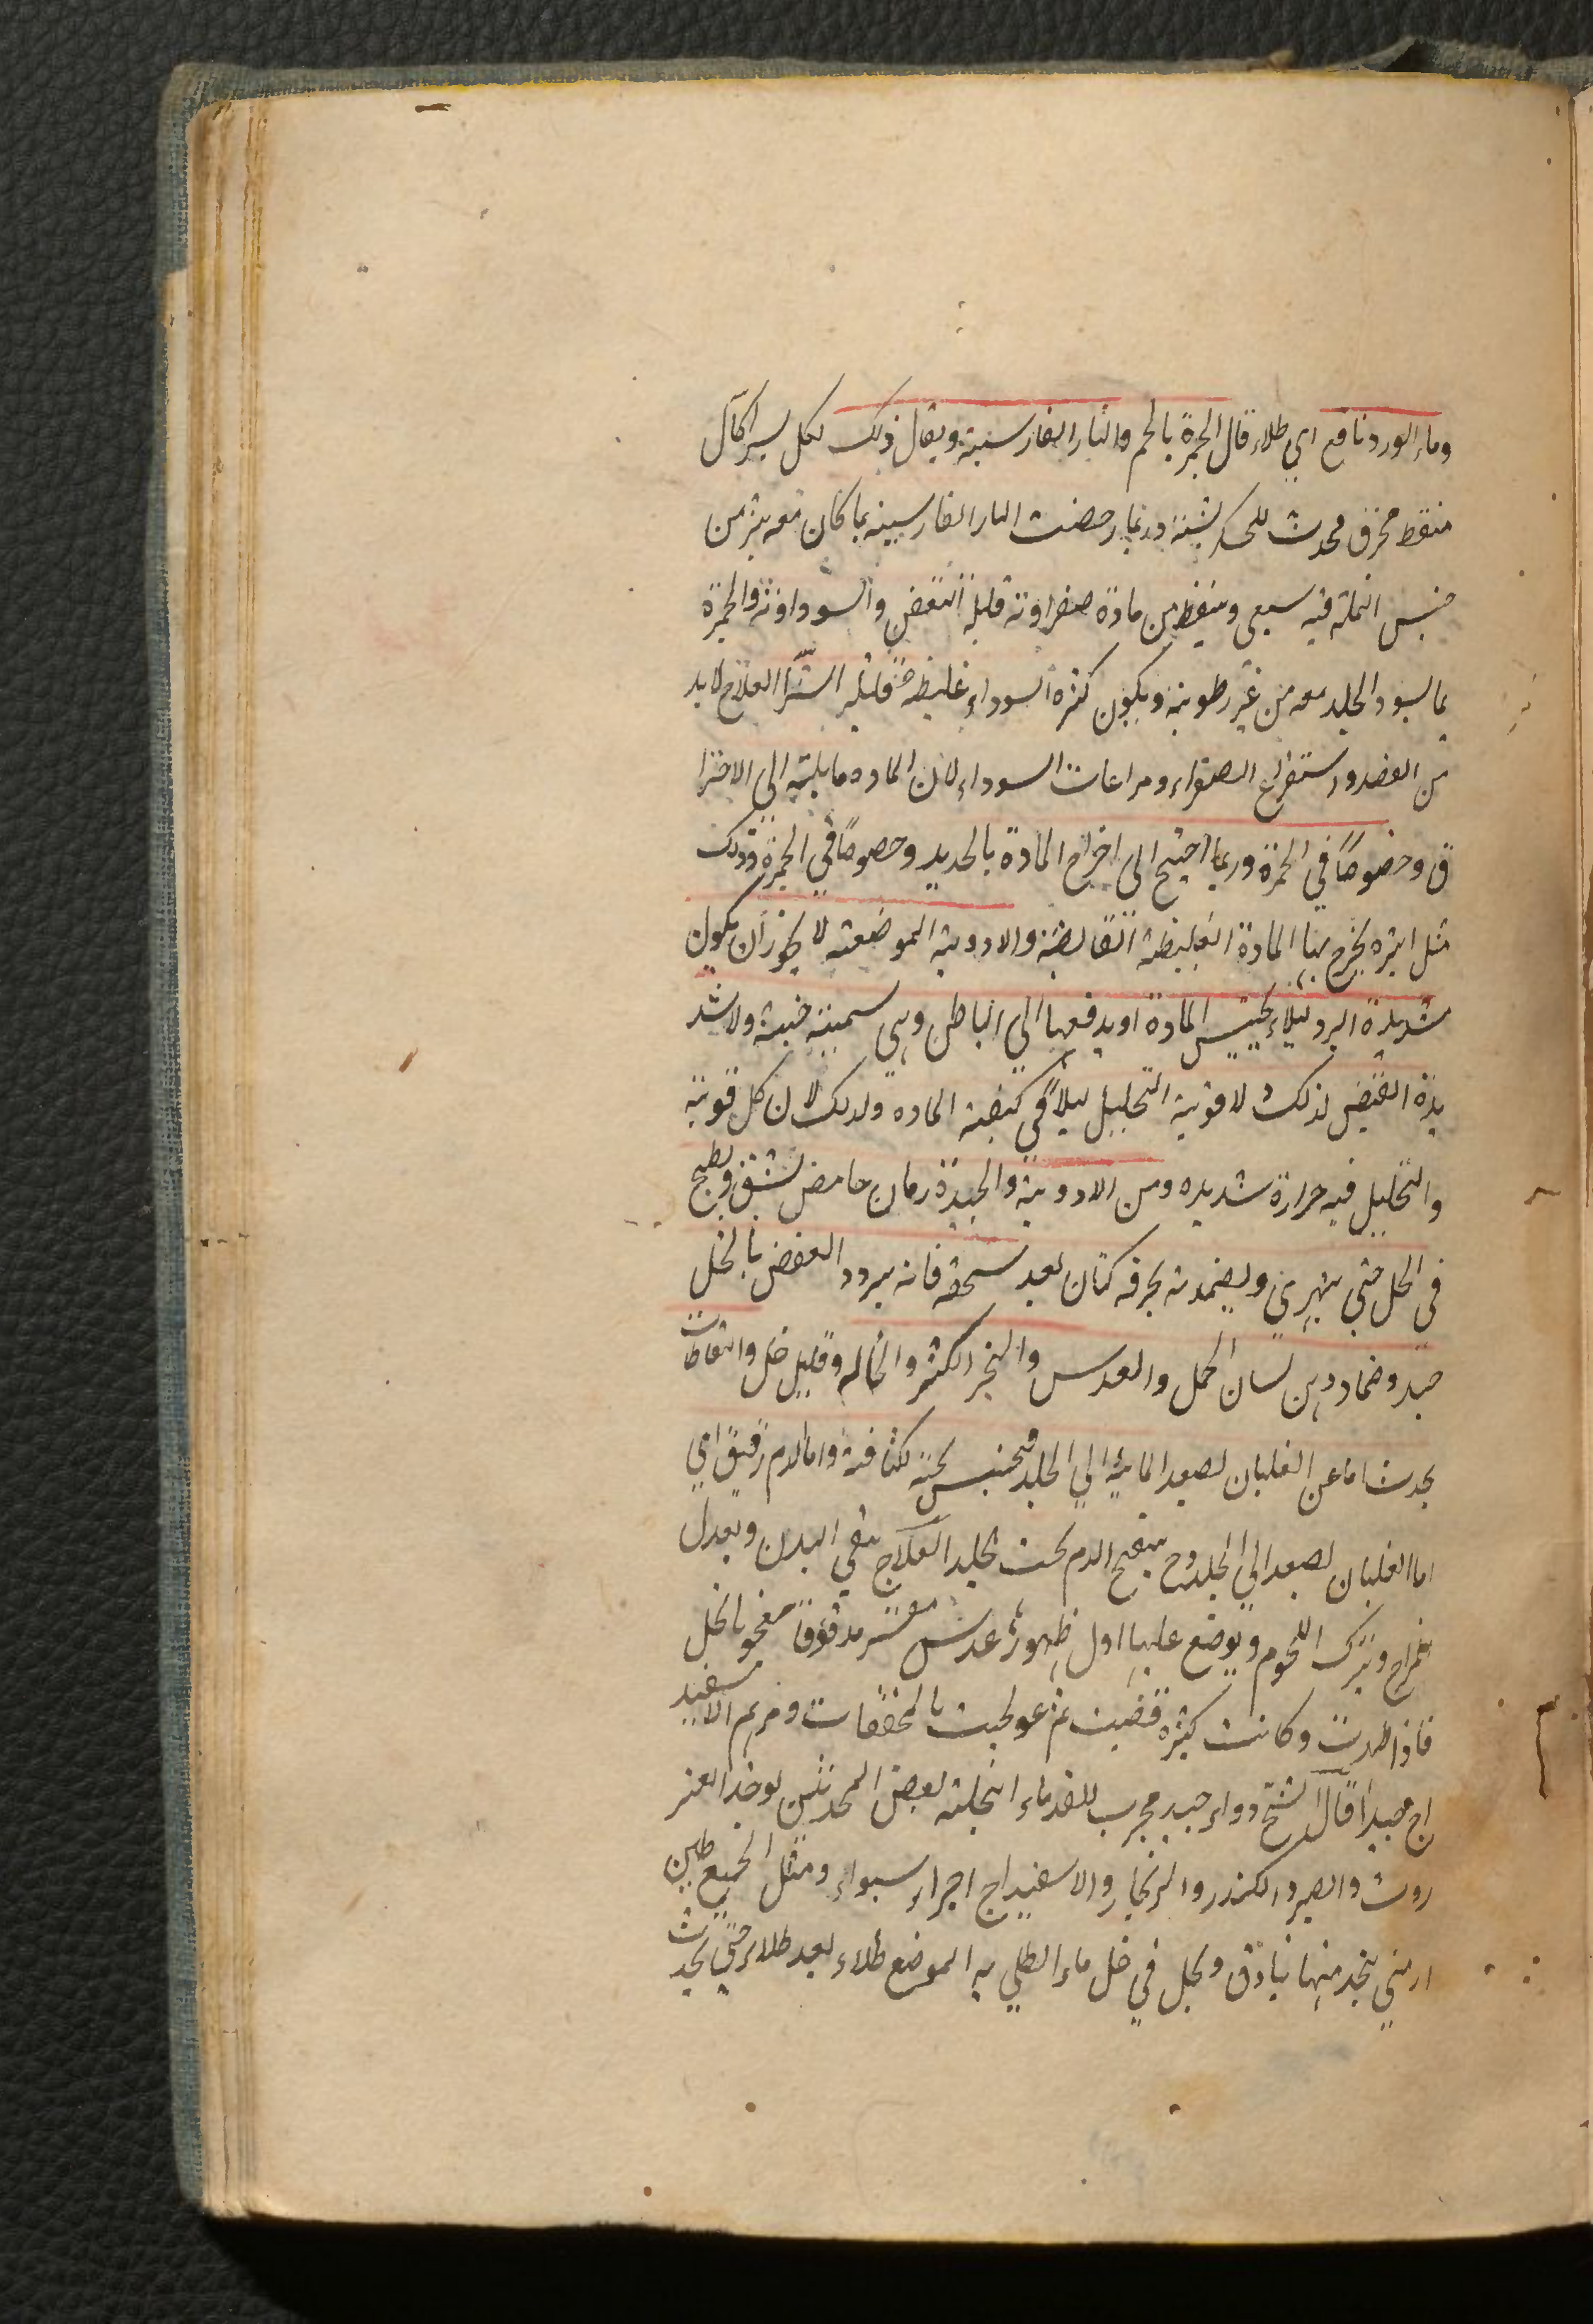 وماء الورد نافع اي طلاء قال الجمرة بالجيم والنار الفارسية ويقال ذلك لكل بثر اكال
منفط محرق محدث للخشكريشة وربما خصت النار الفارسية بما كان معه بثر من
جنس النملة فيه سعي وتنفط من مادة صفراوية قليلة التعفن والسوداوية والجمرة
بما يسود الجلد معه من غير رطوبة ويكون كثيرة السوداء غليظة قليل البثر العلاج لابد
من الفصد واستفراغ الصفراء ومراعات السوداء لان الماده مايلة الي الاحترا
ق وخصوصًا في الجمرة وربما احتيج الى اخراج المادة بالحديد وخصوصًا في الجمرة وذلك
مثل ابره يخرج بها المادة الغليظة القابضة والادوية الموضعية لا يجوز ان يكون
شديدة البرد ليلاء يحتبس المادة او يدفعها الي الباطن وهي سمية خبيثة ولا شد
يدة القبض لذلك ولا قوية التحليل ليلا في كيفية الماده ولذلك لان كل قوية
والتحليل فيه حرارة شديده ومن الادوية والجيدة رمان حامض يشقق ويطبخ
في الخل حتي يتهرى ويضمد به بخرقه كتان بعد سحقه فانه يبرد و العفص بالخل
جيد وضماد من لسان الحمل والعدس والخبز الكثير والنخاله وقليل خل والنفاطات
يحدث اما عن الغليان يصعد المائية الي الجلد فيحتبس تحته لكثافته واما لدم رقيق اي
اما الغليان يصعد الي الجلد وح يتقيح الدم تحت الجلد العلاج ينقي البدن ويعدل
المزاج ويترك اللحوم ويوضع عليها اول ظهورها عدس مقشر مدقوقًا معجونا بالخل
فاذا ظهرت وكانت كثيره فقيت ثم عولجت بالمجففات ومرهم الاسفيد
اج جيدا قال الشيخ دواء جيد مجرب للقدماء انتحلته بعض المحدثين يوخذ العنز
روت والصبر والكندر والزنجار والاسفيداج اجزاء سواء ومثل الجميع طين
ارمني يتخذ منها بنادق ويحل في خل ماء الطلي به الموضع طلاء بعد طلاء حتي يحدث